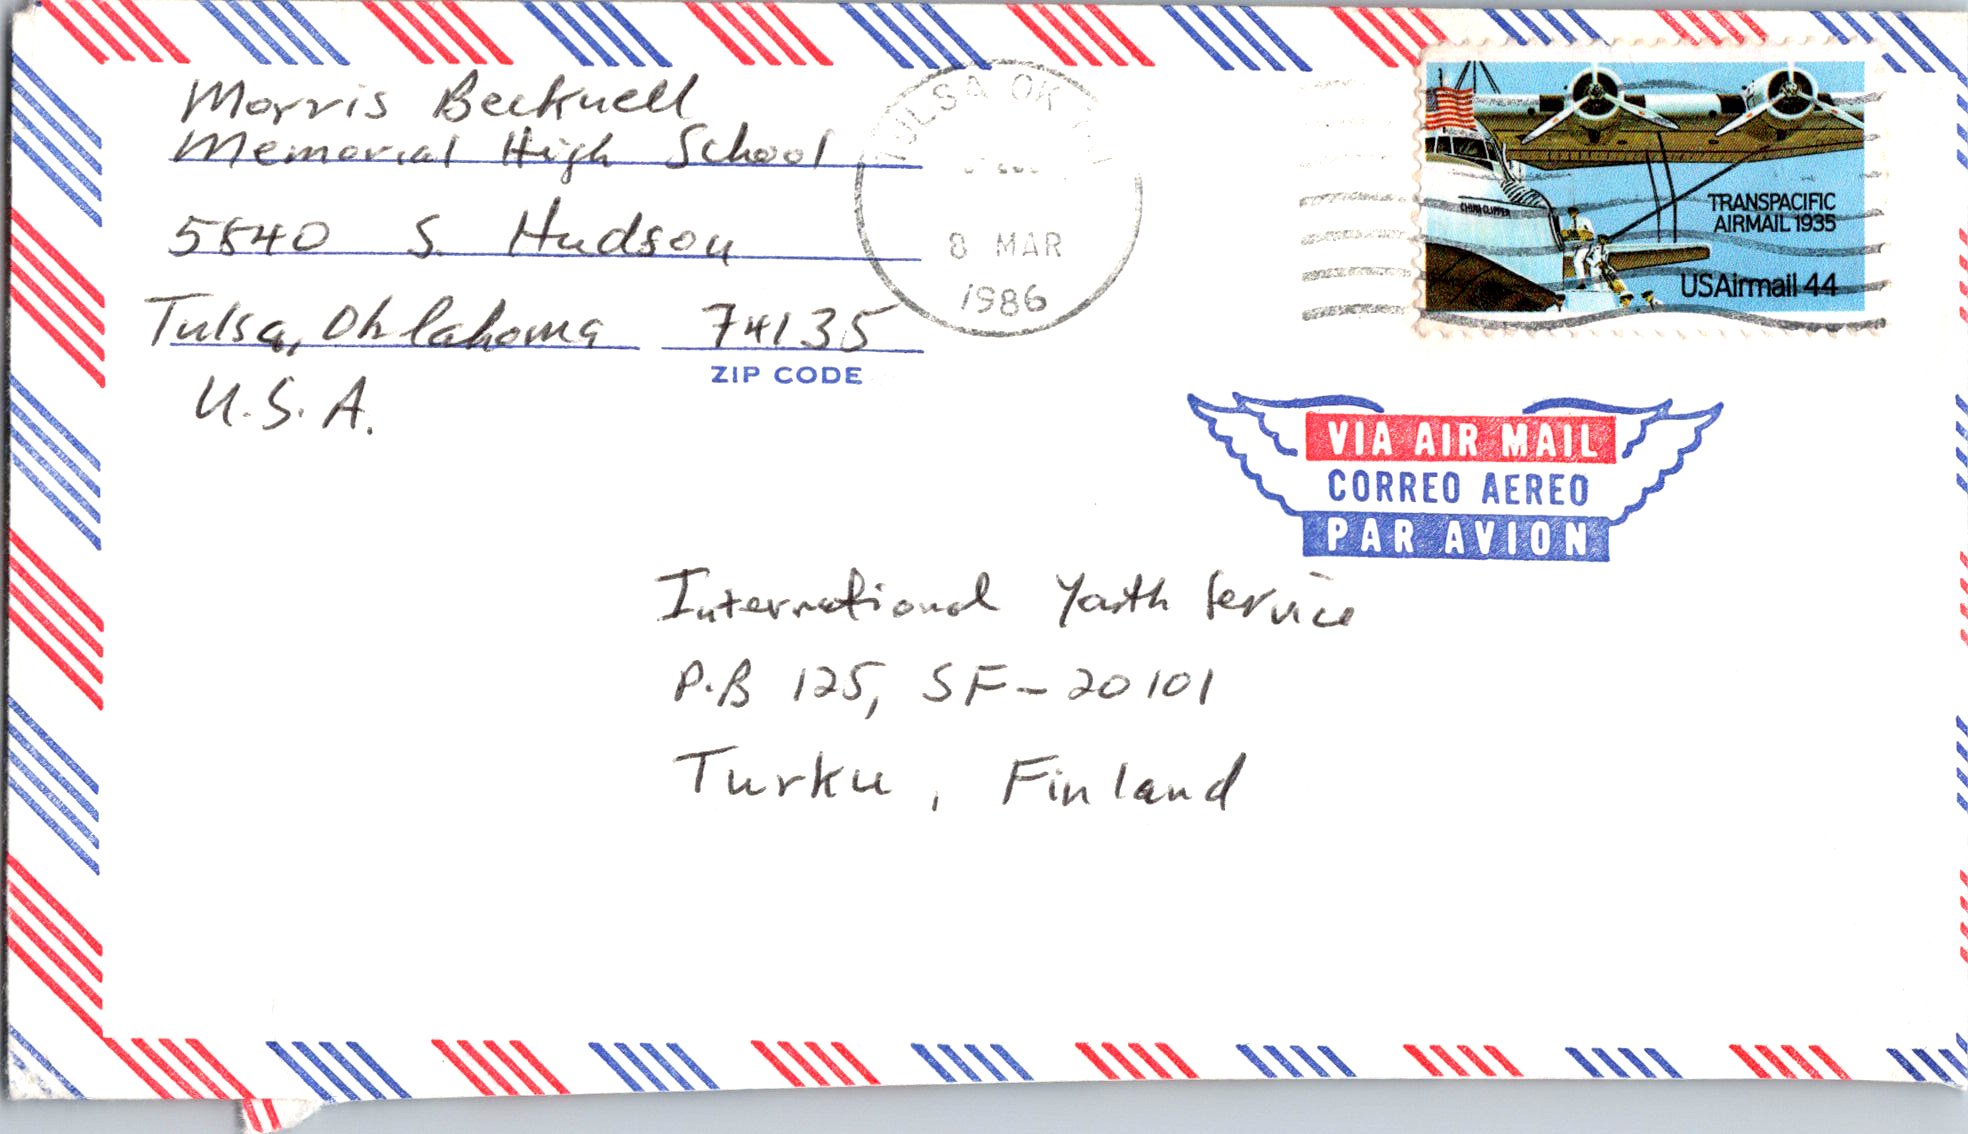 Morris Becknell
Memorial High School
5840 S. Hudson
Tulsa, Oklahoma 74135
ZIP CODE
U.S.A.
TULSA OK
8 MAR
1986
CHINA CLIPPER
TRANSPACIFIC
AIRMAIL 1935
USAirmail 44
VIA AIR MAIL
CORREO AEREO
PAR AVION
International Youth Service
P.B 125, SF-20101
Turku, Finland